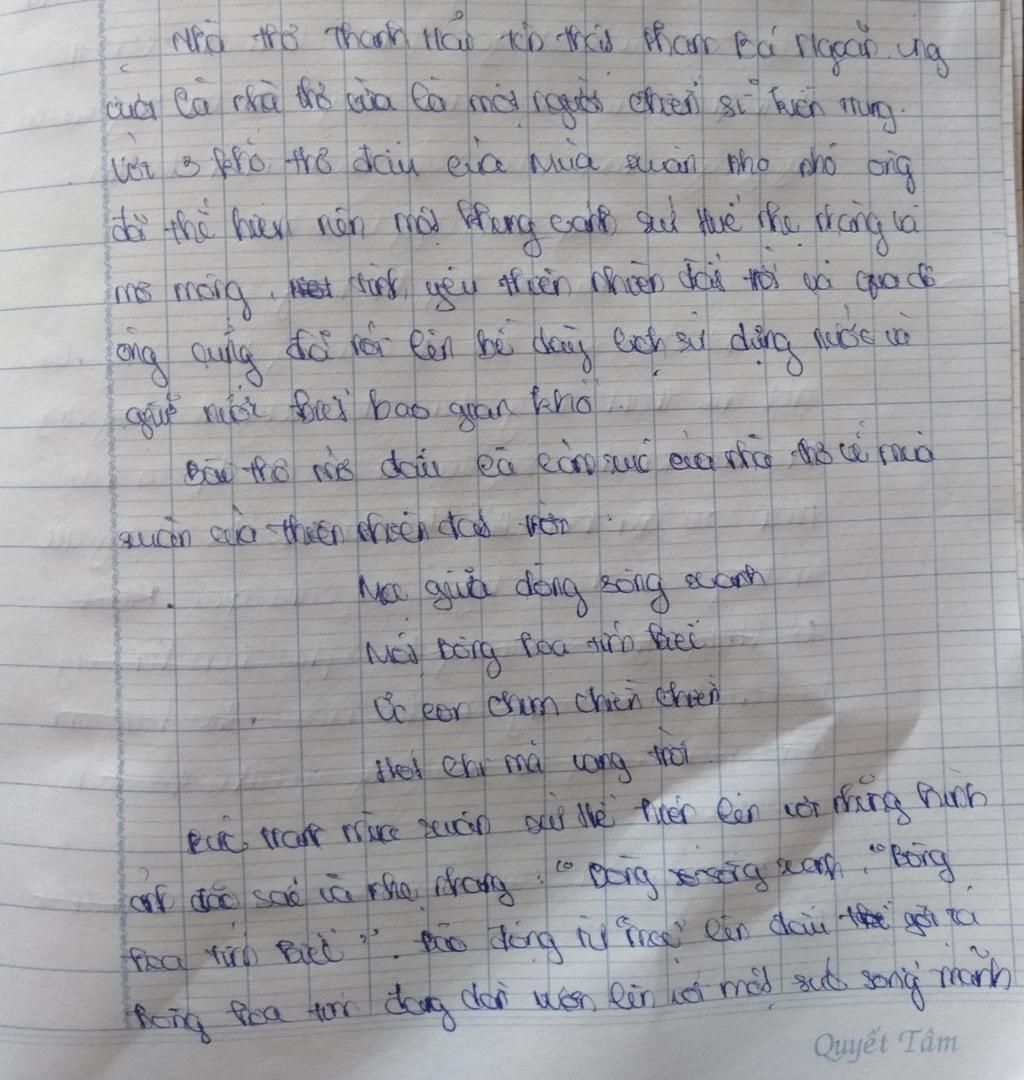 Nhà thơ Thanh Hải tên thật Phạm Bá Ngoãn ông
vừa là nhà thơ vừa là một người chiến sĩ kiên trung.
Với 3 khổ thơ đầu của Mùa xuân nho nhỏ ông
đã thể hiện nên một khung cảnh xứ Huế nhẹ nhàng và
mơ mộng, tình yêu thiên nhiên đất trời và qua đó
ông cũng đã nói lên bề dày lịch sử dựng nước và
giữ nước biết bao gian khó.
thơ đầu là cảm xúc của nhà thơ về mùa
xuân của thiên nhiên đất trời
Mọc giữa dòng sông xanh
Một bông hoa tím biếc
Ơi con chim chiền chiện
Hót chi mà vang trời
Bức tranh mùa xuân xứ Huế hiện lên với những hình
ảnh đặc sắc và nhẹ nhàng. "Dòng sông xanh, "Bông
hoa tím biếc". động từ "mọc" lên đầu gợi tả
Bông hoa tím đang dần vươn lên với một sức sống mãnh
Quyết Tâm